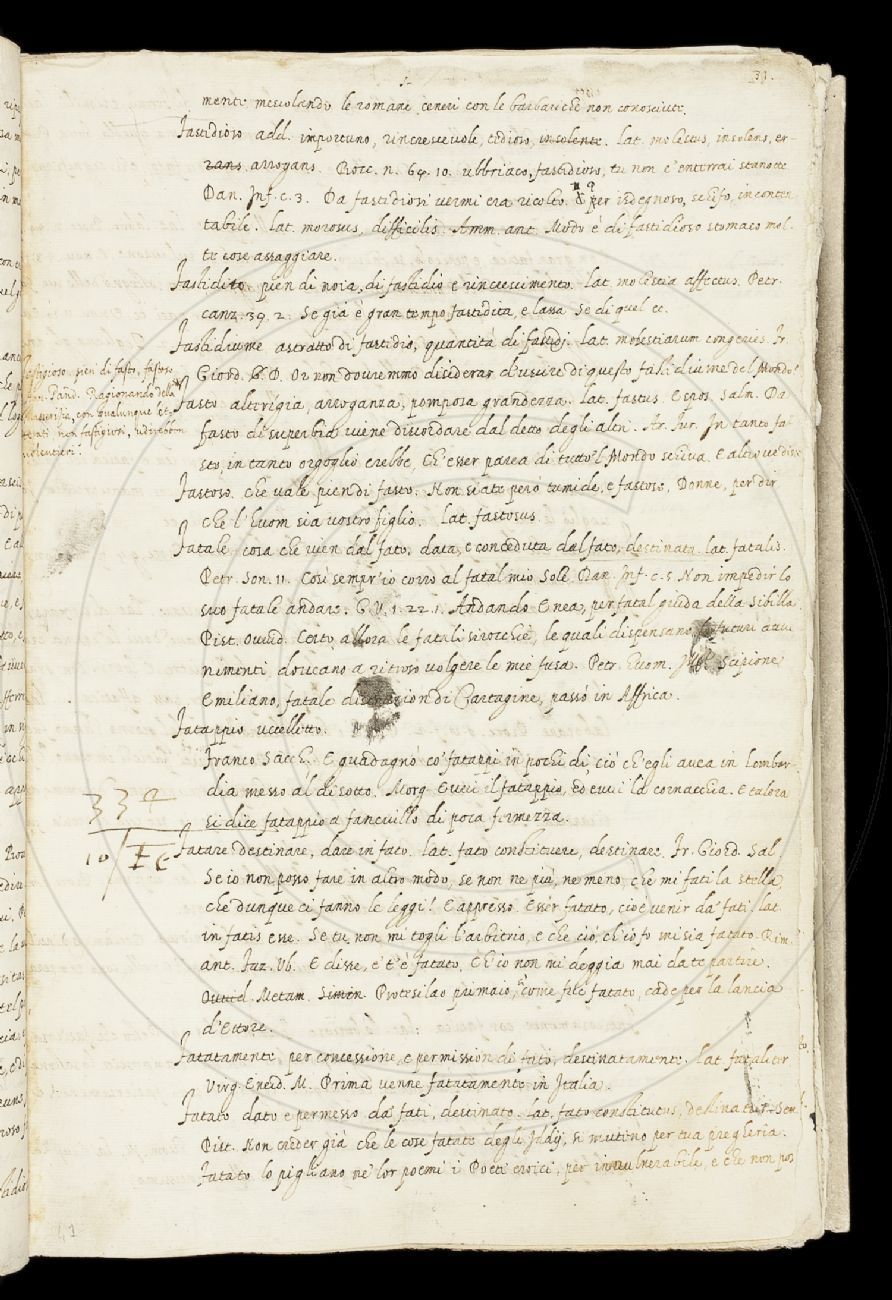 31.
mente mescolando le romane ceneri con le barbariche non conosciute.
Fastidioso add. importuno, rincrescevole, tedioso, insolente. lat. molestus, insolens, er-
rans arrogans. Bocc. n. 64. 10. ubbriaco, fastidioso, tu non c'enterrai stanotte
Dan. Inf. c. 3. Da fastidiosi vermi era ricolto. per isdegnoso, schifo, inconten
tabile. Lat. morosus, difficilis. Amm. ant. Modo è di fastidioso stomaco mol-
te cose assaggiare.
Fastidito. pien di noia, di fastidio e rincrescimento. Lat. molestia affectus. Petr.
canz. 39. 2. Se già è gran tempo fastidita, e lassa Se di quel ec.
Fastidiume astratto di fastidio, quantità di fastidj. Lat. molestiarum congeries. Fr.
Giord. D. Or non dovremmo disiderar d'uscire di questo fastidiume del Mondo?
Fasto alterigia, arroganza, pomposa grandezza. Lat. fastus. Espos. Salm. Da
fasto di superbia viene discordare dal detto degli altri. Ar. Fur. In tanto fa-
sto, in tanto orgoglio crebbe, Ch'esser parea di tutto 'l Mondo schiva. E altrove disse
Fastoso. che vale pien di fasto. Non siate però tumide, e fastose, Donne, per dir
che l'huom sia vostro figlio. Lat. fastosus.
Fatale cosa che vien dal fato, data, e conceduta dal fato, destinata. lat. fatalis.
Petr. Son. 11. Così sempr'io corro al fatal mio Sole. Dan. Inf. c. 5 Non impedir lo
suo fatale andare. G. V. 1. 22. 1. Andando Enea, per fatal guida della Sibilla
Pist. Ovvid. Certo allora le fatali sirocchie, le quali dispensano futuri avve
nimenti doveano a ritroso volgere le mie fusa. Petr. huom. Scipione
Emiliano, fatale di Cartagine, passò in Affrica.
Fatappio uccelletto.
Franco Sacch. E guadagnò co' fatappi in pochi dì, ciò ch'egli avea in Lombar-
dia messo al disotto. Morg. Evvi il fatappio, ed evvi la cornacchia. E talora
si dice fatappio a fanciullo di poca fermezza.
Fatare destinare, dare in fato. lat. fato constituere, destinare. Fr. Giord. Sal.
Se io non posso fare in altro modo, se non ne più, ne meno, che mi fati la stella,
che dunque ci fanno le leggi! E appresso. Esser fatato, cioè venir da' fati, lat.
in fatis esse. Se tu non mi togli l'arbitrio, e che ciò, ch'io fo mi sia fatato. Rim.
ant. Faz. Ub. E disse, e' t'è fatato, Ch'io non mi deggia mai da te partire.
Ovvid. Metam. Protesilao primaio, come fue fatato, cade per la lancia
d'Ettore.
Fatatamente, per concessione, e permission de' fato, destinatamente. Lat. fataliter
Virg. Eneid. M. Prima venne fatatamente in Italia.
Fatato dato e permesso da' fati, destinato. Lat. fato constitutus, destinatus. Sen.
Pist. Non creder già che le cose fatate degli Iddij, si mutino per tua preghiera.
Fatato lo pigliano ne' lor poemi i Poeti eroici, per invulnerabile, e che non pos
Fastigioso pien di fasto, fastoso
Pand. Ragionando della
Masserizia, con qualunque let-
terati non fastigiosi, udirebbon
volentieri.
332
10
41